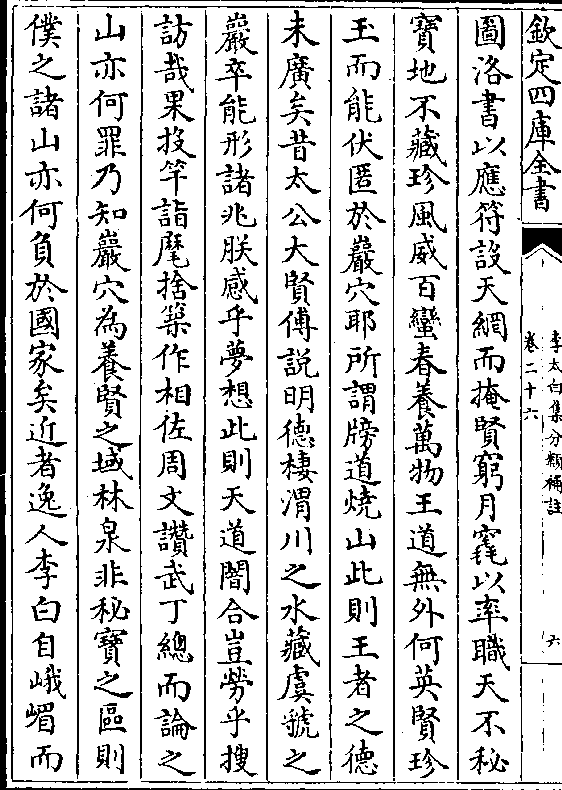 欽定四庫全書
李太白集分類補註
卷二十六
六
圖洛書以應符設天網而掩賢窮月竁以率職天不秘
寶地不藏珍風威百蠻春養萬物王道無外何英賢珍
玉而能伏匿於巖穴耶所謂牓道燒山此則王者之德
未廣矣昔太公大賢傅說明德棲渭川之水藏虞虢之
巖卒能形諸兆朕感乎夢想此則天道闇合豈勞乎搜
訪哉果投竿詣麾捨築作相佐周文讚武丁總而論之
山亦何罪乃知巖穴為養賢之域林泉非秘寶之區則
僕之諸山亦何負於國家矣近者逸人李白自峨嵋而